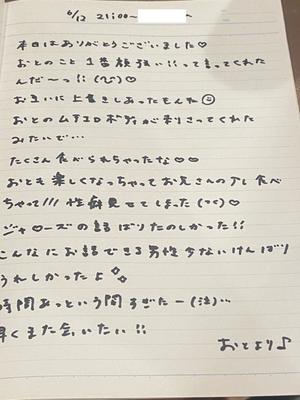 6/12 21:00〜
本日はありがとうございました♡
おとのこと1番 強い!!って言ってくれた
んだ〜っ!!
お互いに上書きしあったもんね☺
おとのムチエロボディが刺さってくれた
みたいで…
たくさん食べられちゃったな♡♡
おとも楽しくなっちゃってお兄さんの少し食べ
ちゃって!!! 性癖見せてしまった
ジャローズの話ばりたのしかった!!
こんなにお話できる男性少ないけんばり
うれしかったよ
時間あっという間すぎたー(泣)…
早くまた会いたい!!
おとより♪